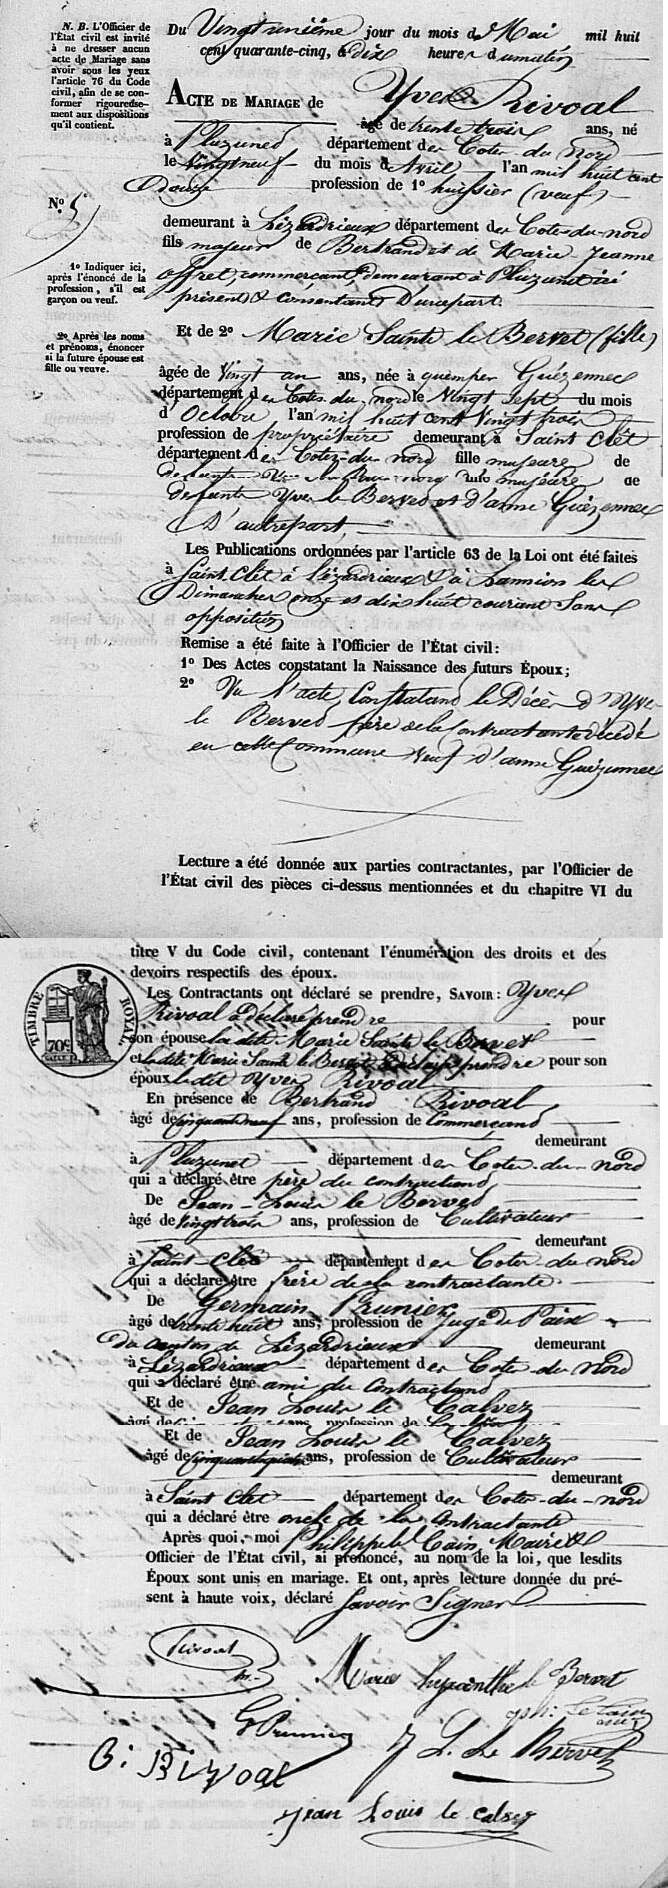 N. B. L'Officier de
l'État civil est invité
à ne dresser aucun
acte de Mariage sans
avoir sous les yeux
l'article 76 du Code
civil, afin de se con-
former rigoureuse-
ment aux dispositions
qu'il contient.
Du Vingt unième jour du mois de Mai mil huit
cent quarante-cinq, à dix heures du matin
ACTE DE MARIAGE de Yves Rivoal
âgé de trente trois ans, né
à Pluzunet département des Cotes-du-Nord
le vingt neuf du mois d'Avril l'an mil huit cent
Douze profession de 1° huissier (veuf)
N° 5
demeurant à Lézardrieux département des Cotes-du-nord
fils majeur de Bertrand et de Marie Jeanne
offret, commerçants demeurant à Pluzunet ici
présents & consentants D'une part.
1° Indiquer ici,
après l'énoncé de la
profession, s'il est
garçon ou veuf.
Et de 2° Marie Sainte le Bervet (fille)
2° Après les noms
et prénoms, énoncer
si la future épouse est
fille ou veuve.
âgée de Vingt un ans, née à quemper Guézennec
département des Cotes du nord le Vingt Sept du mois
d'Octobre l'an mil huit cent Vingt trois
profession de propriétaire demeurant à Saint Clet
département des Cotes-du nord fille majeure de
defunte
defunts Yves le Bervet et d'anne Guézennec
D'autre part,
Les Publications ordonnées par l'article 63 de la Loi ont été faites
à Saint Clet à Lézardrieux & à Lannion les
Dimanches onze et dix huit courant Sans
opposition
Remise a été faite à l'Officier de l'État civil:
1° Des Actes constatant la Naissance des futurs Époux;
2° Vu l'acte Constatant le Décès d'Yves
le Bervet père de la contractante décédé
en cette Commune Veuf d'anne Guézennec
Lecture a été donnée aux parties contractantes, par l'Officier de
l'État civil des pièces ci-dessus mentionnées et du chapitre VI du
titre V du Code civil, contenant l'énumération des droits et des
devoirs respectifs des époux.
TIMBRE ROYAL
70c
Les Contractants ont déclaré se prendre, SAVOIR: Yves
Rivoal a déclaré prendre pour
son épouse la dite Marie Sainte le Bervet
et la dite Marie Sainte le Bervet déclare prendre pour son
époux le dit Yves Rivoal
En présence de Bertrand Rivoal
âgé de cinquante neuf ans, profession de Commerçant
demeurant
à Pluzunet département des Cotes-du-nord
qui a déclaré être père du contractant
De Jean-Louis le Bervet
âgé de vingt trois ans, profession de Cultivateur
demeurant
à Saint-Clet département des Cotes-du-nord
qui a déclaré être frère de la contractante.
De Germain Prunier
âgé de trente huit ans, profession de Juge de Paix
du canton de Lézardrieux demeurant
à Lézardrieux département des Cotes du Nord
qui a déclaré être ami du Contractant
Et de Jean Louis le Calvez
âgé de ans, profession de
Et de Jean Louis le Calvez
âgé de ans, profession de Cultivateur
demeurant
à Saint Clet département des Cotes-du-nord
qui a déclaré être oncle de la Contractante
Après quoi, moi Philippe le Cain, Maire &
Officier de l'État civil, ai prononcé, au nom de la loi, que lesdits
Époux sont unis en mariage. Et ont, après lecture donnée du pré-
sent à haute voix, déclaré savoir Signer
Rivoal
Marie hyacinthe le Bervet
ph. le Cain
G Prunier
J L. Le Bervet
B: Rivoal
Jean Louis le Calvez